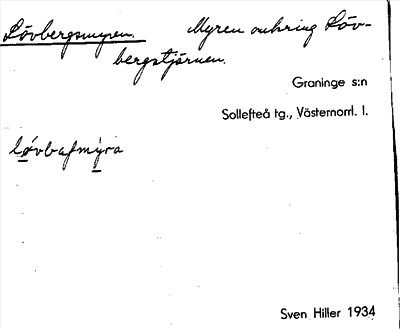 Lövbergsmyren. Myren omkring Löv-
bergstjärnen.
Graninge s:n
Sollefteå tg., Västernorrl. l.
lövbafmyra
Sven Hiller 1934